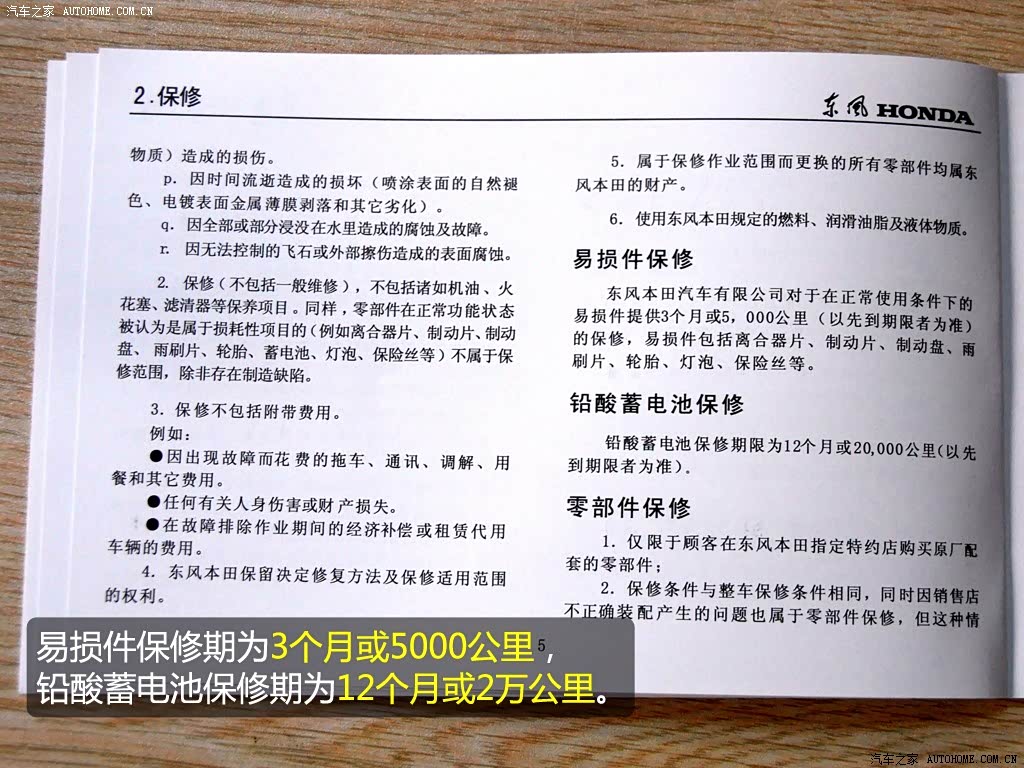 汽车之家 AUTOHOME.COM.CN
2.保修
东风 HONDA
物质）造成的损伤。
p. 因时间流逝造成的损坏（喷涂表面的自然褪
色、电镀表面金属薄膜剥落和其它劣化）。
q. 因全部或部分浸没在水里造成的腐蚀及故障。
r. 因无法控制的飞石或外部擦伤造成的表面腐蚀。
2. 保修（不包括一般维修），不包括诸如机油、火
花塞、滤清器等保养项目。同样，零部件在正常功能状态
被认为是属于损耗性项目的（例如离合器片、制动片、制动
盘、雨刷片、轮胎、蓄电池、灯泡、保险丝等）不属于保
修范围，除非存在制造缺陷。
3. 保修不包括附带费用。
例如：
●因出现故障而花费的拖车、通讯、调解、用
餐和其它费用。
●任何有关人身伤害或财产损失。
●在故障排除作业期间的经济补偿或租赁代用
车辆的费用。
4. 东风本田保留决定修复方法及保修适用范围
的权利。
5. 属于保修作业范围而更换的所有零部件均属东
风本田的财产。
6. 使用东风本田规定的燃料、润滑油脂及液体物质。
易损件保修
东风本田汽车有限公司对于在正常使用条件下的
易损件提供3个月或5，000公里（以先到期限者为准）
的保修，易损件包括离合器片、制动片、制动盘、雨
刷片、轮胎、灯泡、保险丝等。
铅酸蓄电池保修
铅酸蓄电池保修期限为12个月或20,000公里（以先
到期限者为准）.
零部件保修
1. 仅限于顾客在东风本田指定特约店购买原厂配
套的零部件；
2. 保修条件与整车保修条件相同，同时因销售店
不正确装配产生的问题也属于零部件保修，但这种情
5
易损件保修期为3个月或5000公里，
铅酸蓄电池保修期为12个月或2万公里。
汽车之家 AUTOHOME.COM.CN